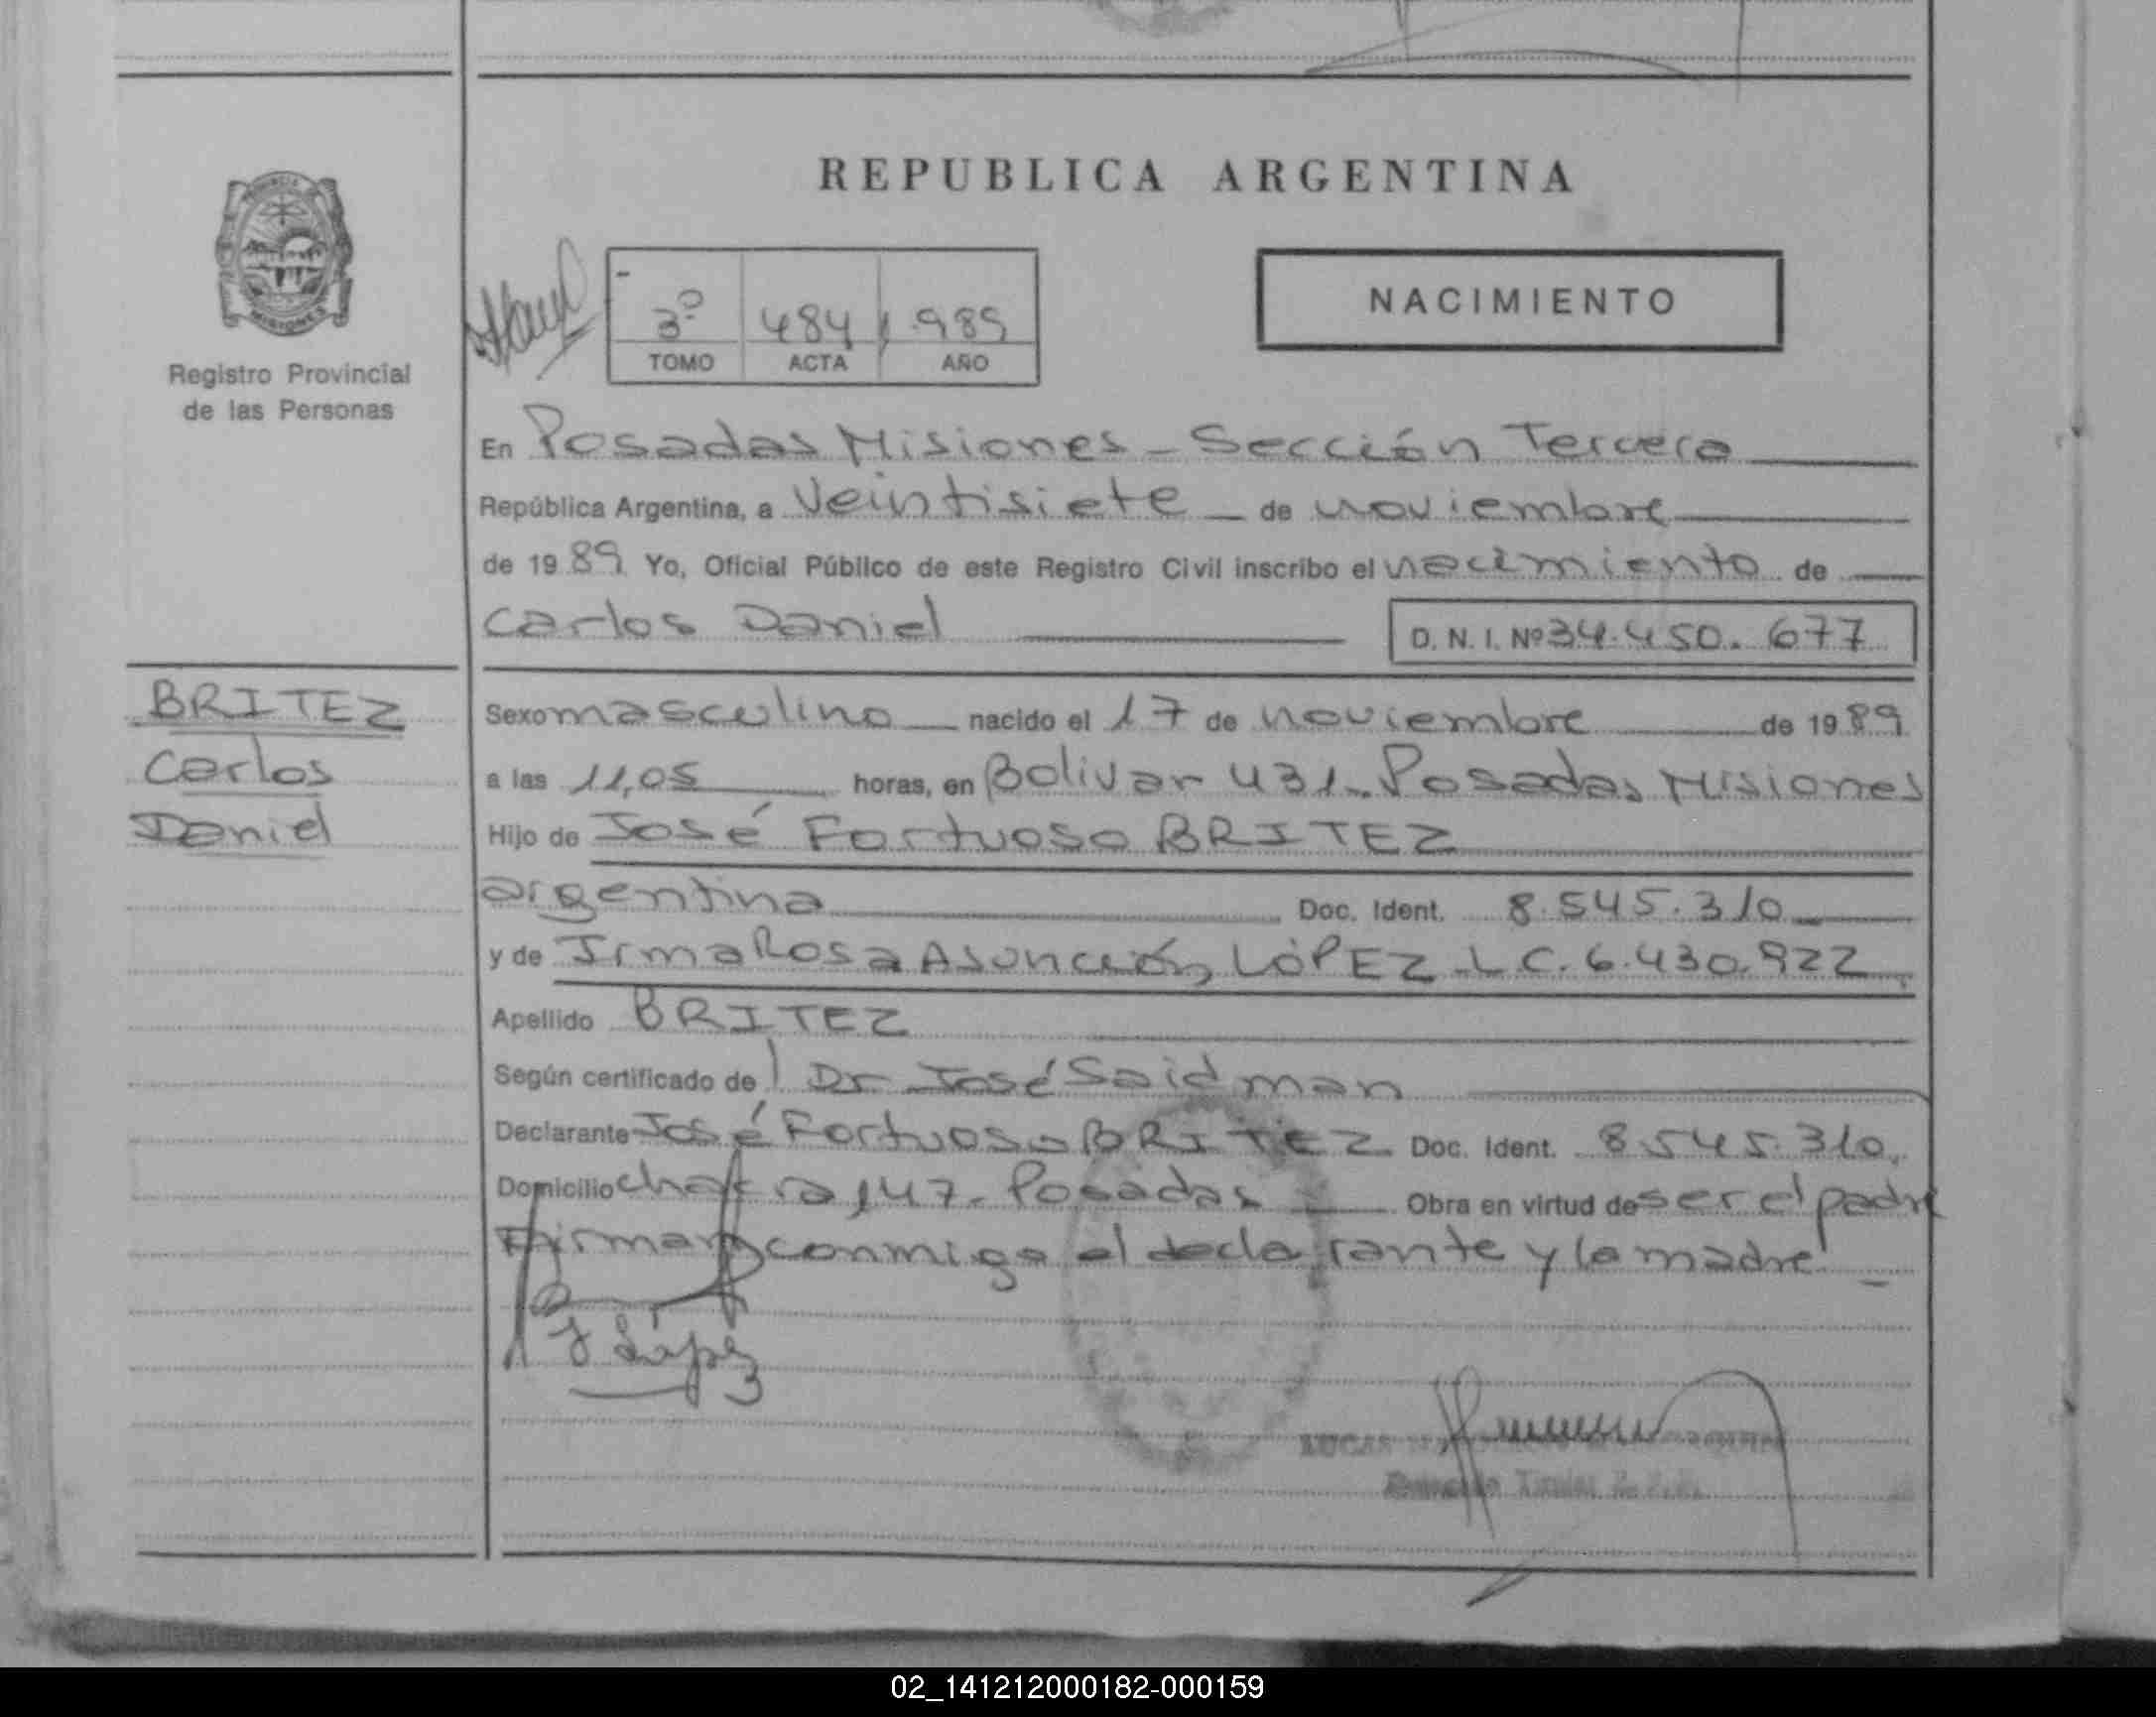 REPUBLICA ARGENTINA
NACIMIENTO
3º 484 1.989
TOMO ACTA AÑO
Registro Provincial
de las Personas
En Posadas Misiones - Sección Tercera
República Argentina, a Veintisiete de noviembre
de 19 89 Yo, Oficial Público de este Registro Civil inscribo el nacimiento de
Carlos Daniel
D. N. I. Nº 34.450.677
BRITEZ
Carlos
Daniel
Sexo masculino nacido el 17 de noviembre de 19 89
a las 11,05 horas, en Bolivar 431. Posadas Misiones
Hijo de José Fortuoso BRITEZ
argentina Doc. Ident. 8.545.310
y de Irma Rosa Asunción LÓPEZ L.C. 6.430.922
Apellido BRITEZ
Según certificado del Dr José Saidman
Declarante José Fortuoso BRITEZ Doc. Ident. 8.545.310.
Domicilio chacra 147. Posadas Obra en virtud de ser el padre
Firman conmigo el declarante y la madre
J López
LUCAS
Titular
02_141212000182-000159